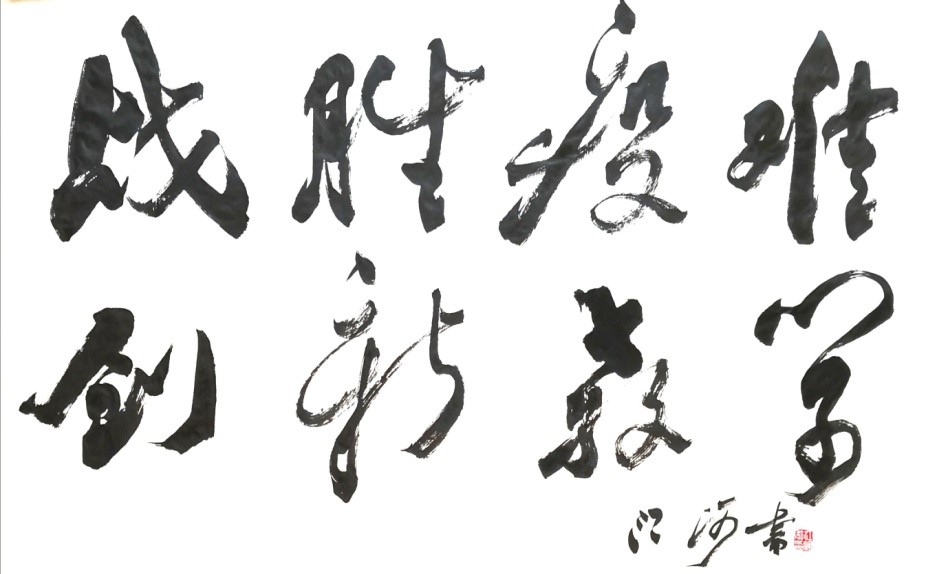 战胜疫难
创新教学
江河書